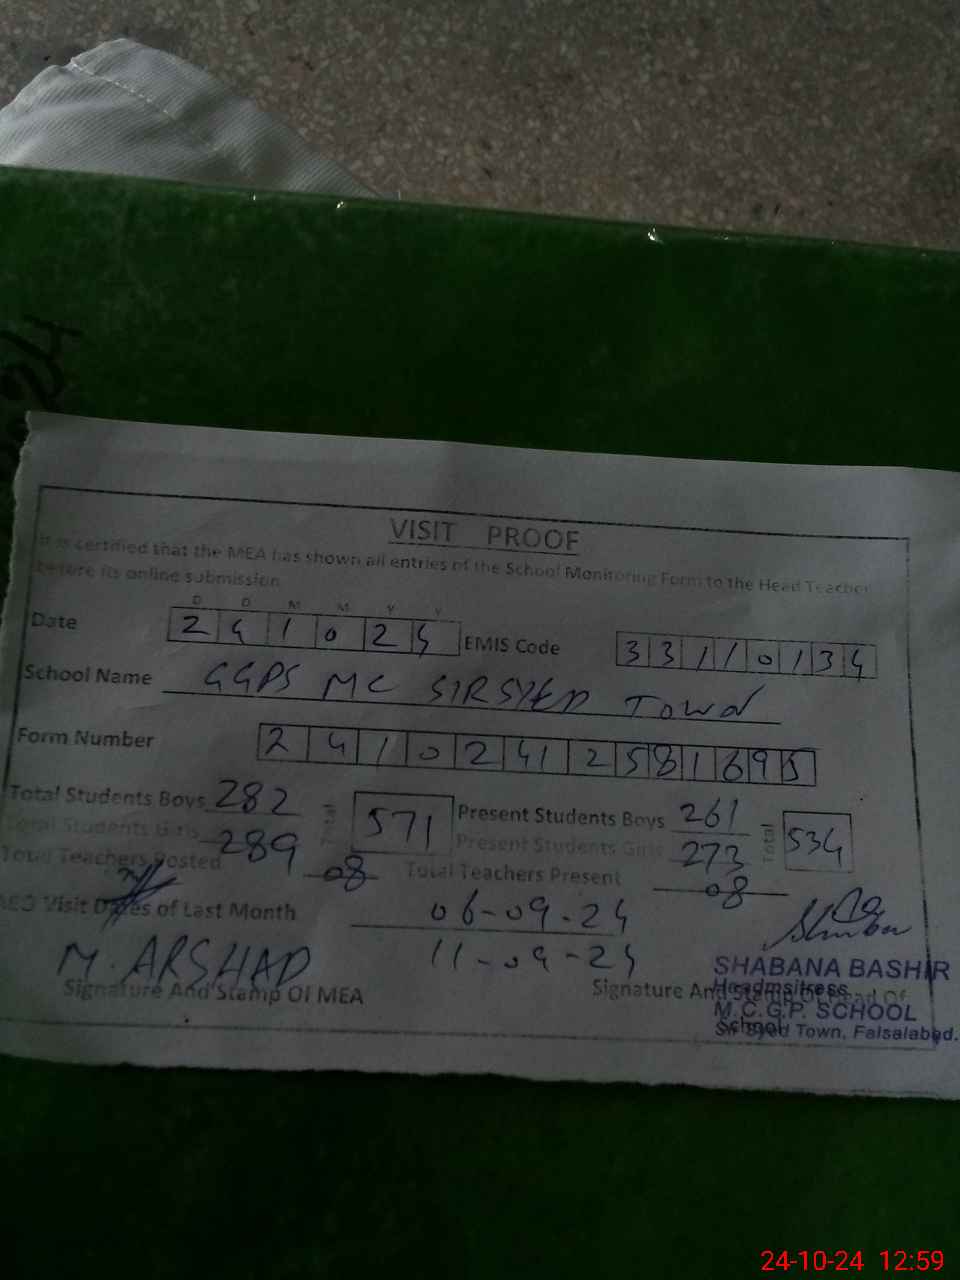 VISIT PROOF
It is certified that the MEA has shown all entries of the School Monitoring Form to the Head Teacher
before its online submission
D D M M Y Y
Date 241024 EMIS Code 33110134
School Name GGPS MC SIRSYED TOWN
Form Number 24102412581695
Total Students Boys 282 Total 571 Present Students Boys 261 Total 534
Total Students Girls 289 Present Students Girls 273
Total Teachers Posted 08 Total Teachers Present 08
AEO Visit Dates of Last Month 06-09-24
11-09-24
M. ARSHAD
Signature And Stamp Of MEA Signature And Stamp Of Head Of
School
SHABANA BASHIR
Headmsitress
M.C.G.P. SCHOOL
Sir Syed Town, Faisalabad.
24-10-24 12:59